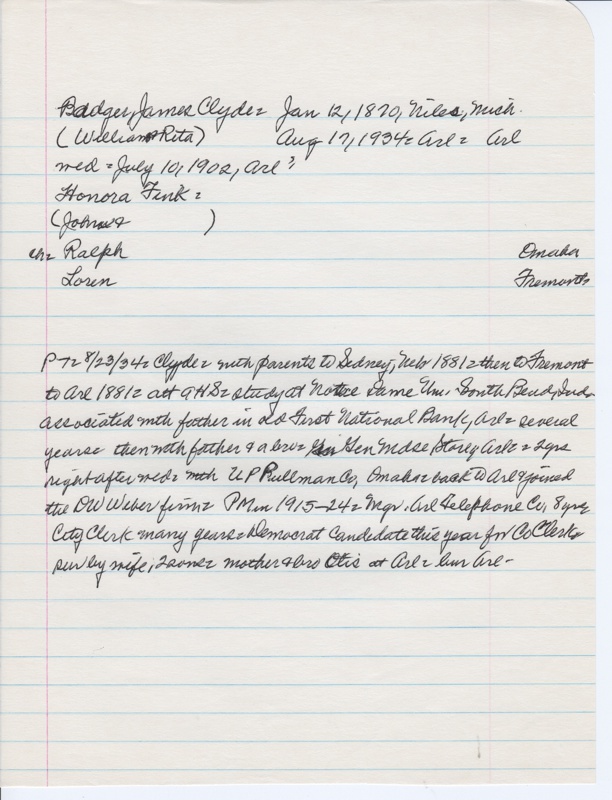 Badger, James Clyde = Jan 12, 1870, Niles, Mich.
(William & Rita) Aug 17, 1934 = Arl = Arl
med = July 10, 1902, Arl?
Honora Fink =
(John & )
ch = Ralph Omaha
Loren Fremont
P T = 8/23/34 = Clyde = with parents to Sidney, Neb 1881 = then to Fremont
to Arl 1881 = att AHS = study at Notre Dame Uni South Bend, Ind
associated with father in old First National Bank, Arl = several
years = then with father & a bro = Gen Mdse Store, Arl = 2 yrs
right after med = with U P Pullman Co, Omaha = back to Arl & joined
the DW Weber firm = P M in 1915-24 = Mgr. Arl Telephone Co, 8 yrs
City Clerk many years = Democrat candidate this year for Co Clerk
sur by wife, 2 sons = mother & bro Otis at Arl = bur Arl -